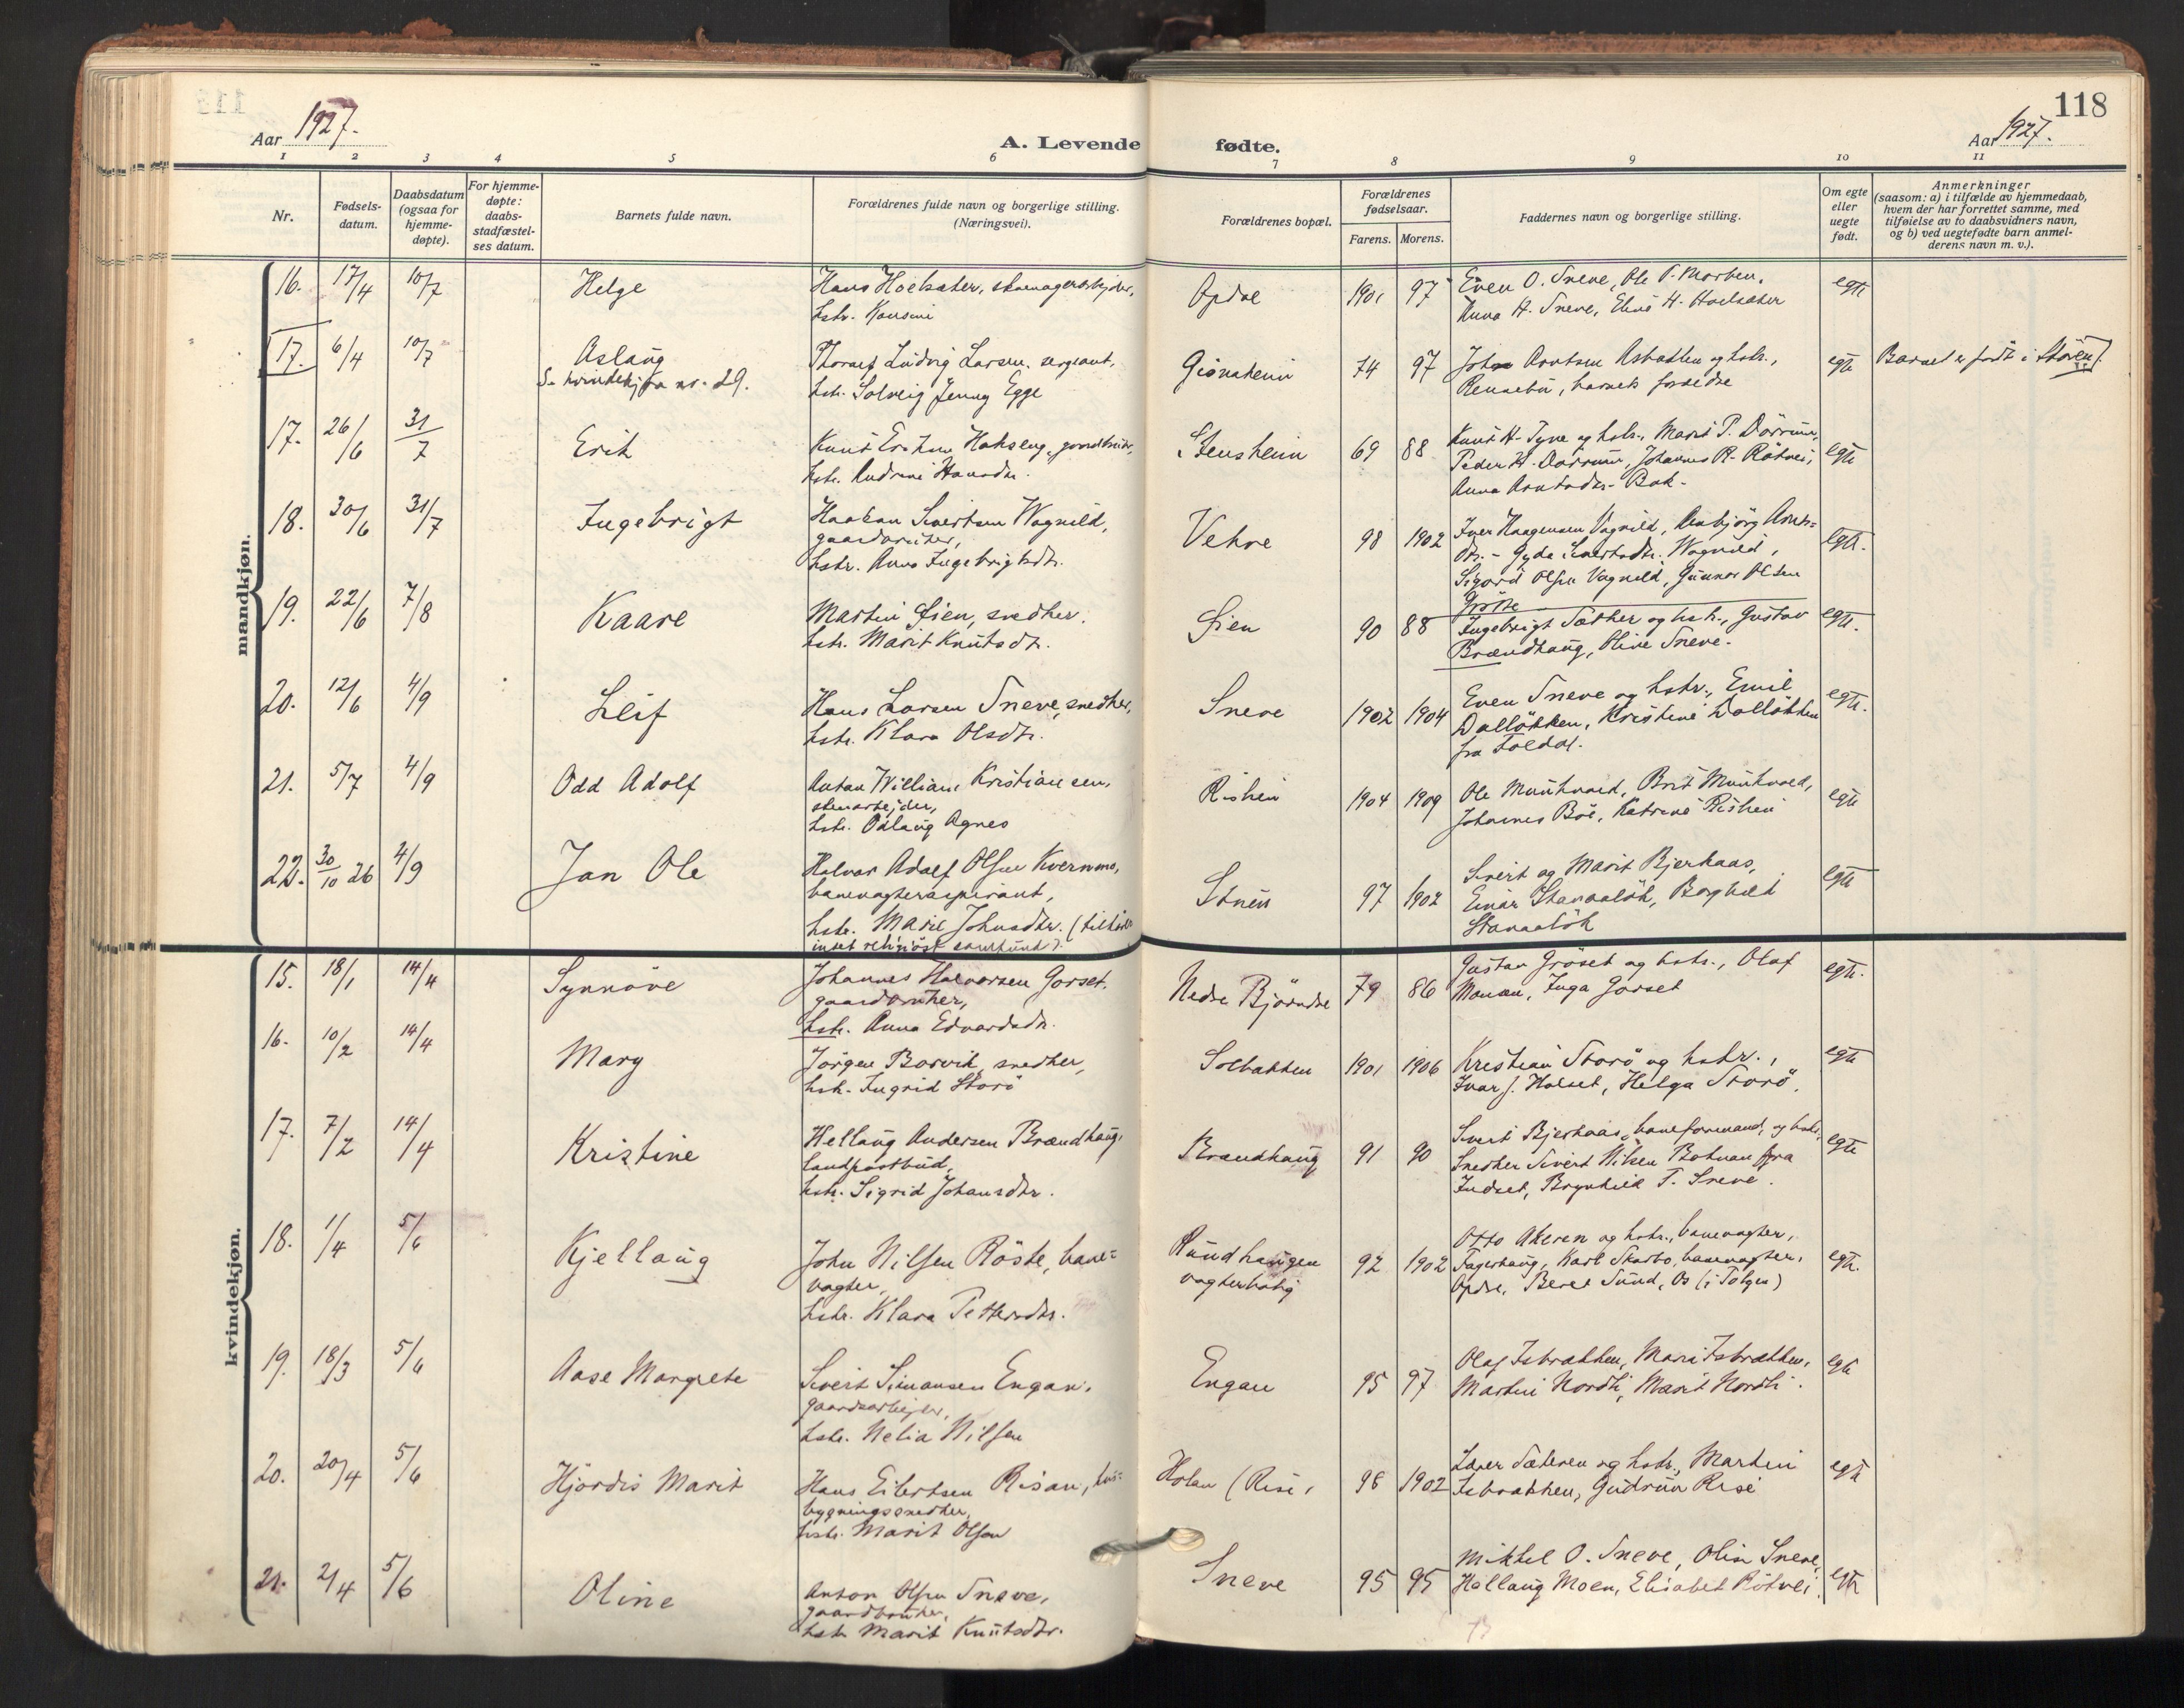 118
Aar 1927.
A. Levende fødte.
Aar 1927.
1 2 3 4 5 6 7 8 9 10 11
Nr.
Fødsels-
datum.
Daabsdatum
(ogsaa for
hjemme-
døpte).
For hjemme-
døpte:
daabs-
stadfæstel-
ses datum.
Barnets fulde navn.
Forældrenes fulde navn og borgerlige stilling.
(Næringsvei).
Forældrenes bopæl.
Forældrenes
fødselsaar.
Farens. Morens.
Faddernes navn og borgerlige stilling.
Om egte
eller
uegte
født.
Anmerkninger
(saasom: a) i tilfælde av hjemmedaab,
hvem der har forrettet samme, med
tilføielse av to daabsvidners navn,
og b) ved uegtefødte barn anmel-
derens navn m. v.).
mandkjøn.
16. 17/4 10/7 Helge
Hans Hoelsæter,
hstr.
Opdal 1901 97
Even O. Sneve, Ole
Anna H. Sneve, H. Hoelsæter
egte
17. 6/4 10/7 Aslaug
S. kvindekj. nr. 29.
Thoralf Ludvig Larsen, sergeant,
hstr. Solveig Jenny Egge
74 97
John Arntsen og hstr.,
Rennebu, barnets forældre
egte
Barnet er født i Støren.
17. 26/6 31/7 Erik
Knut
hstr. Hansdtr.
Stensheim 69 88
Knut H. og hstr., Marit P. Dörrum,
Peder H. Dörrum, Johannes R.
Anna Arntsdtr. Bak.
egte
18. 30/6 31/7 Ingebrigt
Haakon Sivertsen Wognild,
gaardbruker,
hstr. Anna Ingebrigtsdtr.
98 1902
Iver Haagensen Vognild,
dtr. - Gyda Sivertsdtr. Wognild,
Sigurd Olsen Vognild, Gunnar Olsen
egte.
19. 22/6 7/8 Kaare
Martin Lien, snedker.
hstr. Marit Knutsdtr.
Lien 90 88
Ingebrigt Sæther og hstr., Gustav
Brændhaug, Oline Sneve.
egte.
20. 12/6 4/9 Leif
Hans Larsen Sneve, snedker,
hstr. Klara Olsdtr.
Sneve 1902 1904
Even Sneve og hstr., Emil
Dallökken, Kristine Dallökken
fra Foldal.
egte.
21. 5/7 4/9 Odd Adolf
Anton William Kristiansen,
stenarbejder,
hstr. Aslaug Agnes
Rishei 1904 1909
Ole Munkvold, Brit Munkvold,
Johannes Böe, Katrine Rishei
egte
22. 30/10 26 4/9 Jan Ole
Halvor Adolf Olsen Kvernmo,
banevogteraspirant,
hstr. Marie Johnsdtr. (tilhører
intet religiöst samfund).
97 1902
Sivert og Marit Bjerkaas,
Einar Stavaalök, Borghild
Stavaalök
egte
kvindekjøn.
15. 18/1 14/4 Synnöve
Johannes Halvorsen Gorset,
gaardbruker,
hstr. Anna Edvardsdtr.
Nedre Björndal 79 86
Gustav Gröset og hstr., Olaf
Inga Gorset
egte.
16. 10/2 14/4 Mary
Jörgen Borvik, snedker,
hstr. Ingrid Storö
Solbakken 1901 1906
Kristian Storö og hstr.,
Ivar J. Holset, Helga Storö.
egte
17. 7/2 14/4 Kristine
Hellaug Andersen Brændhaug,
landpostbud,
hstr. Sigrid Johansdtr.
Brændhaug 91 90
Sivert Bjerkaas, baneformand, og hstr.,
Snedker Sivert Nilsen fra
Indset, Brynhild T. Sneve.
egte
18. 1/4 5/6 Kjellaug
John Nilsen Röste, bane=
vogter,
hstr. Klara Pettersdtr.
Rundhaugen
vogterbolig
92 1902
Otto Akeren og hstr., banevogter,
Fagerhaug, Karl Skarbo, banevogter,
Opdal, Beret Sund, Os (i Tolgen)
egte.
19. 18/3 5/6 Aase Margrete
Sivert Simonsen Engan,
gaardsarbeider,
hstr. Nelia Nilsen
Engan 95 97
Olaf Isbrækken, Mari Isbrækken,
Martin Nordli, Marit Nordli.
egte
20. 20/4 5/6 Hjördis Marit
Hans Eilertsen Risan, hus=
bygningssnedker,
hstr. Marit Olsen
Holan (Rise, 98 1902
Lærer Sæteren og hstr., Martin
Isbrækken, Gudrun Rise
egte
21. 2/4 5/6 Oline
Anton Olsen Sneve,
gaardbruker,
hstr. Marit Knutsdtr.
Sneve 95 95
Mikkel O. Sneve, Olin Sneve,
Hellaug Moen, Elisabet Rötvei.
egte